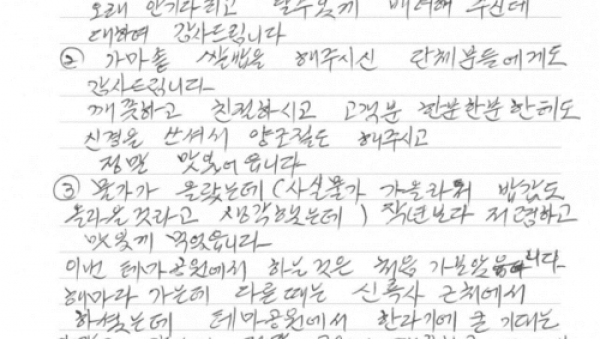 오래 안기다리고 탈수있게 배려해 주신데
대하여 감사드립니다
② 가마솥 쌀밥을 해주시신 단체분들에게도
감사드립니다
깨끗하고 친절하시고 고객분 한분한분한테도
신경을 쓰셔서 양조절도 해주시고
정말 맛있어 읍니다
③ 물가가 올랐는데 (사실물가 가올라 밥값도
올라을것라고 생각했는데) 작년보다 저렴하고
맛있게 먹었읍니다
이번 테마공원에서 하는것은 처음 가보았읍니다
해마다 가는데 다른때는 신륵사 근처에서
하셨는데 테마공원에서 한라기에 큰 기대는